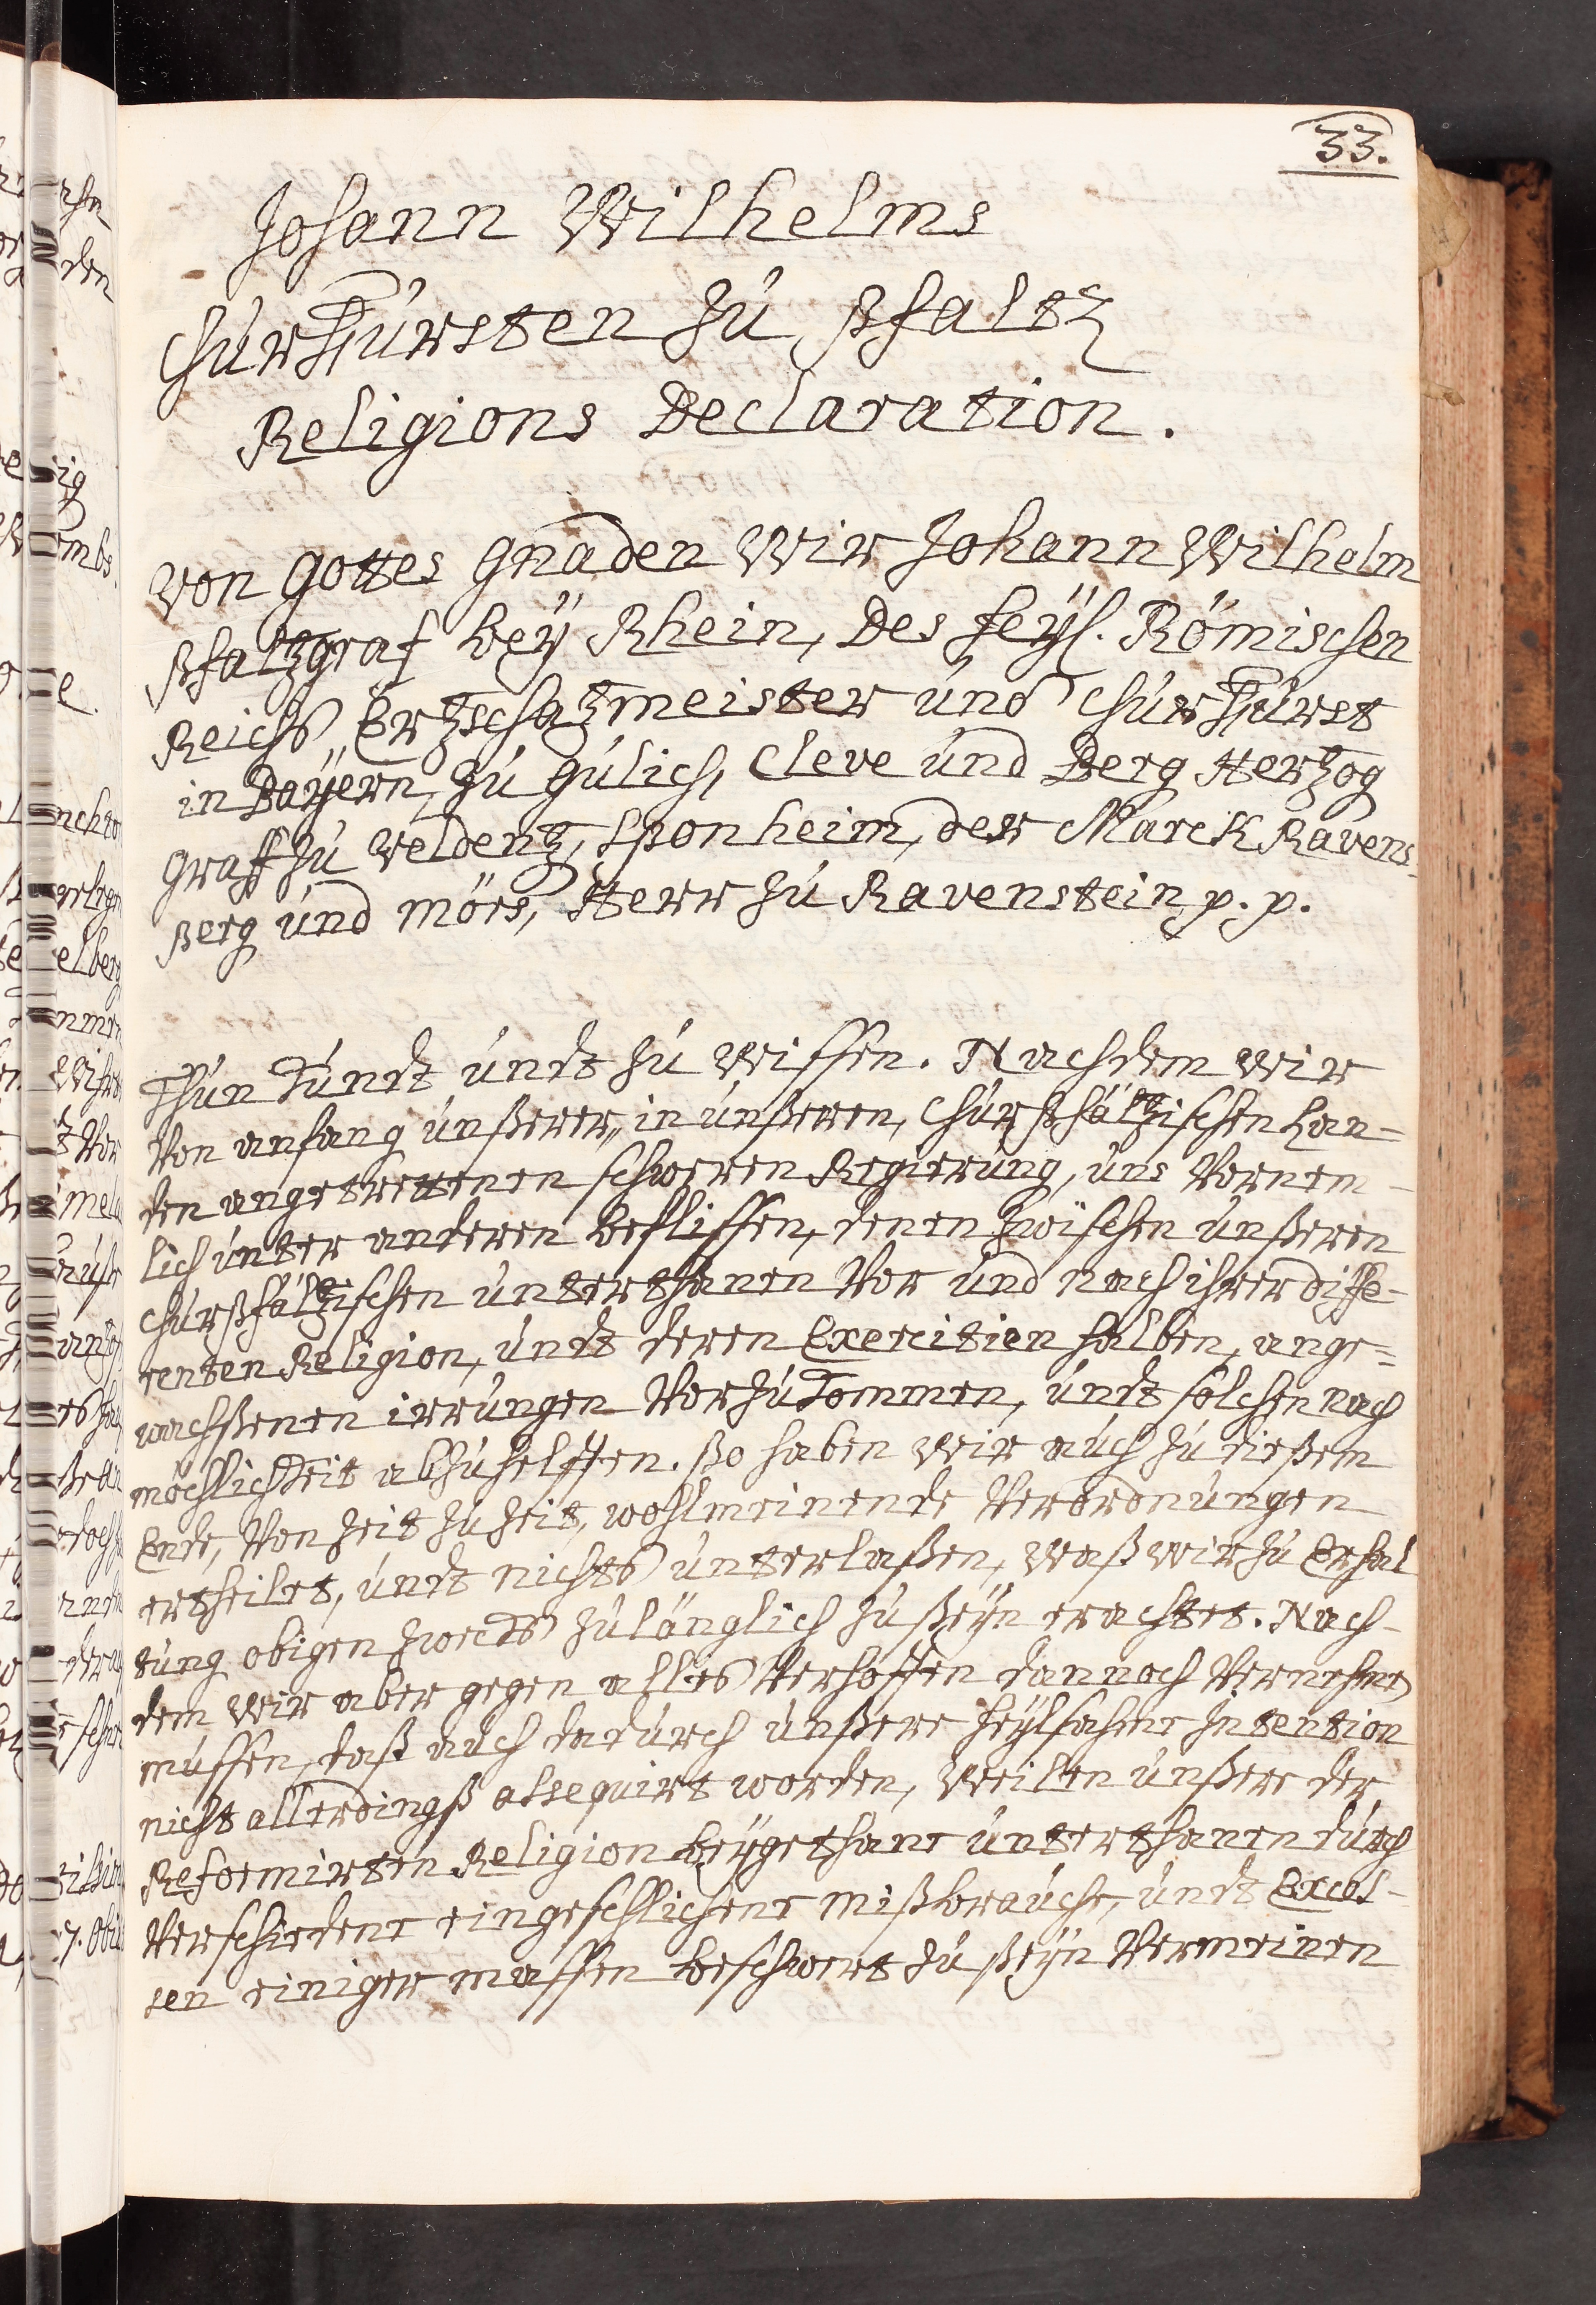 33.
Johann Wilhelms
ChurFürsten zu Pfaltz
Religions Declaration.
Von Gottes Gnaden Wir Johann Wilhelm
Pfaltzgraf bey Rhein, Des Heyl. Römischen
Reichs, Ertzschatzmeister und ChurFürst
in Bayern, zu Gülich, Cleve und Berg Hertzog
Graff zu Veldentz, Sponheim, der Marck Ravens-
Berg und Mörs, Herr zu Ravenstein p. p.
Thun Kundt undt zu wissen. Nachdem wir
Von anfang unßerer, in unßeren, ChurPfältzischen Lan-
den angetrettenen schweren Regierung, uns Vornem-
lich unter anderen beflissen, denen zwischen unßeren
ChurPfältzischen unterthanen Vor und nach ihrer diffe-
renten Religion, undt deren Exercitien halben, ange-
wachßenen irrungen Vorzukommen, undt solchen nach
möchlichkeit abzuhelffen. ßo haben wir auch zu dießem
Ende, Von Zeit zu Zeit, wohlmeinende Verordnungen
ertheilet, undt nichts unterlaßen, waß wir zu Erhal
tung obigen Zwecks zulänglich zu ßeyn erachtet. Nach-
dem wir aber gegen alles Verhoffen dannoch Vernehmen
müssen, daß auch dadurch unßere heylsahme Intention
nicht allerdingß assequirt worden, Weilen unßere der
Reformirten Religion beygethane unterthanen durch
Verschiedene eingeschlichene Mißbrauche, undt Exces-
sen einiger massen beschwert zu ßeyn Vermeinen